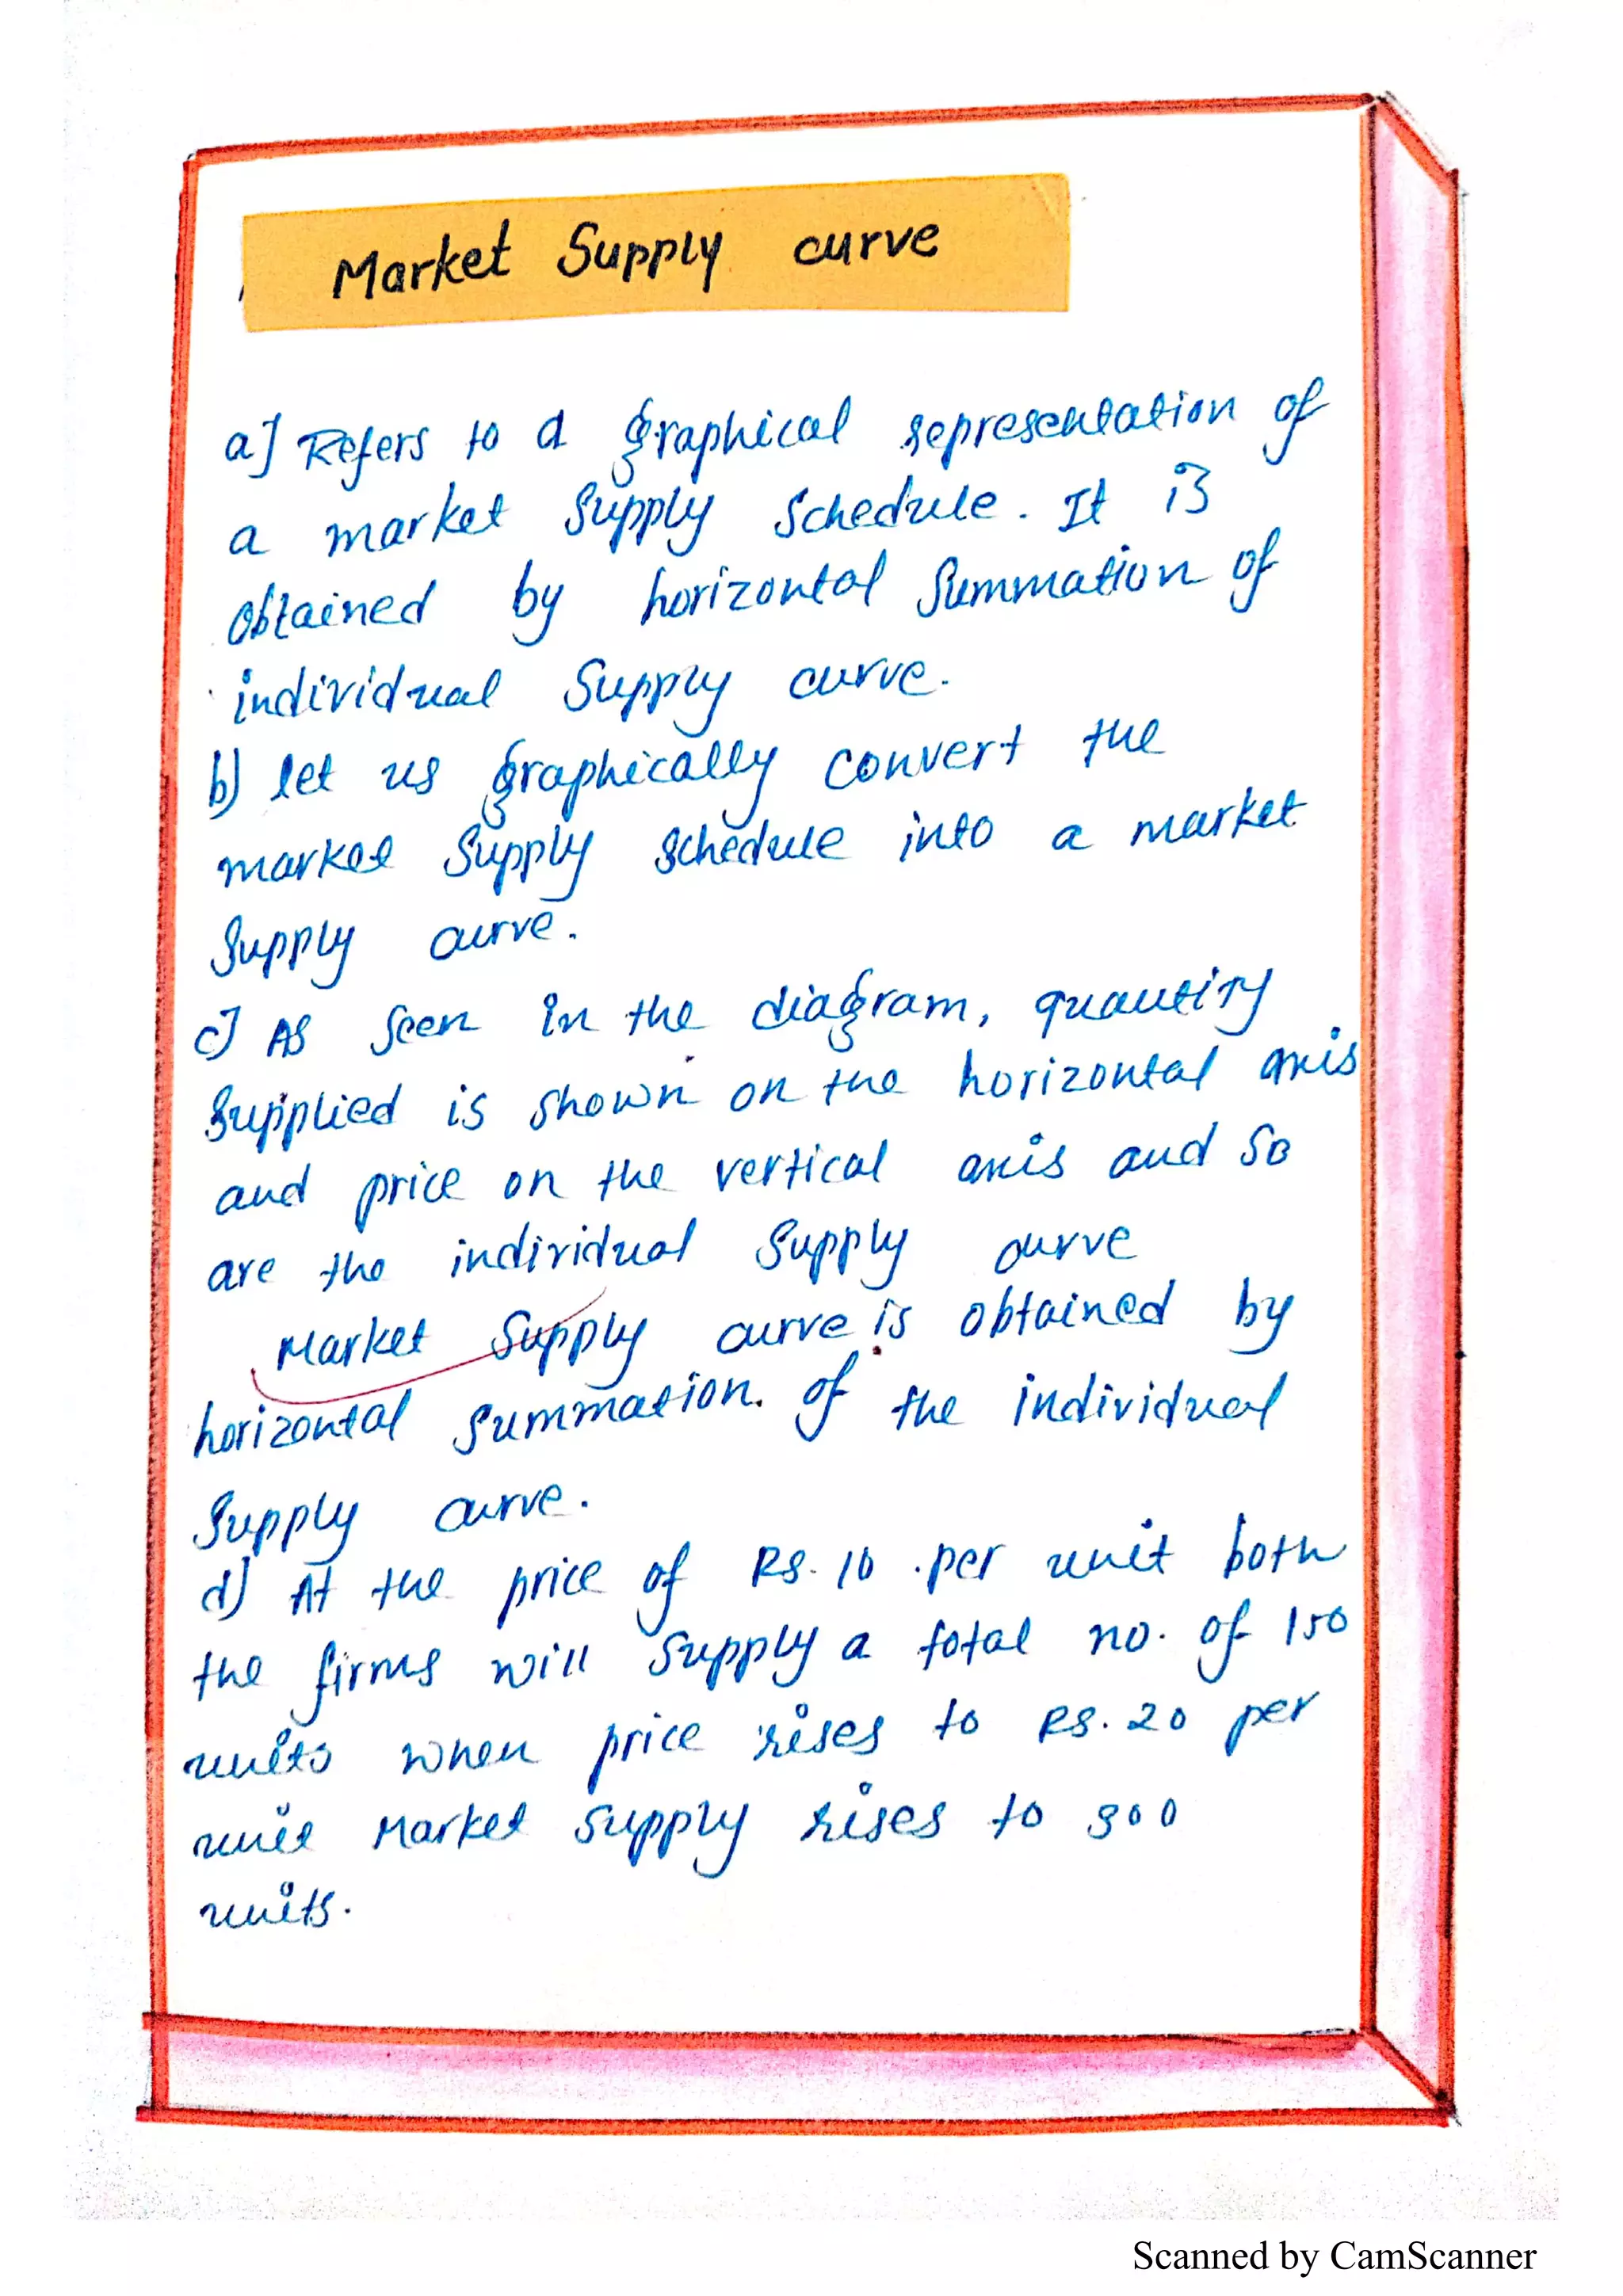 Market Supply curve
a] Refers to a graphical representation of
a market Supply Schedule. It is
obtained by horizontal Summation of
individual Supply curve.
b) let us graphically convert the
market Supply schedule into a market
Supply curve.
c] As Seen in the diagram, quantity
Supplied is shown on the horizontal axis
and price on the vertical axis and So
are the individual Supply curve
Market Supply curve is obtained by
horizontal Summation. of the individual
Supply curve.
d) At the price of Rs. 10 per unit both
the firms will Supply a total no. of 150
units when price rises to Rs. 20 per
unit Market Supply rises to 300
units.
Scanned by CamScanner